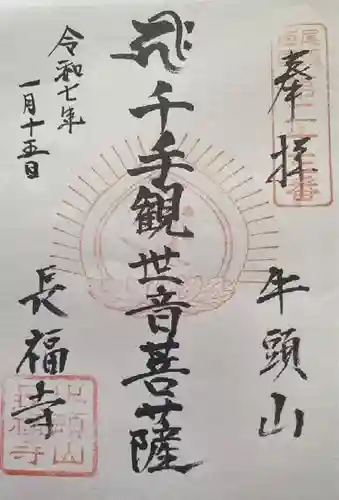 奉拝
牛頭山
千手観世音菩薩
令和七年
一月十五日
長福寺
牛頭山
長福寺